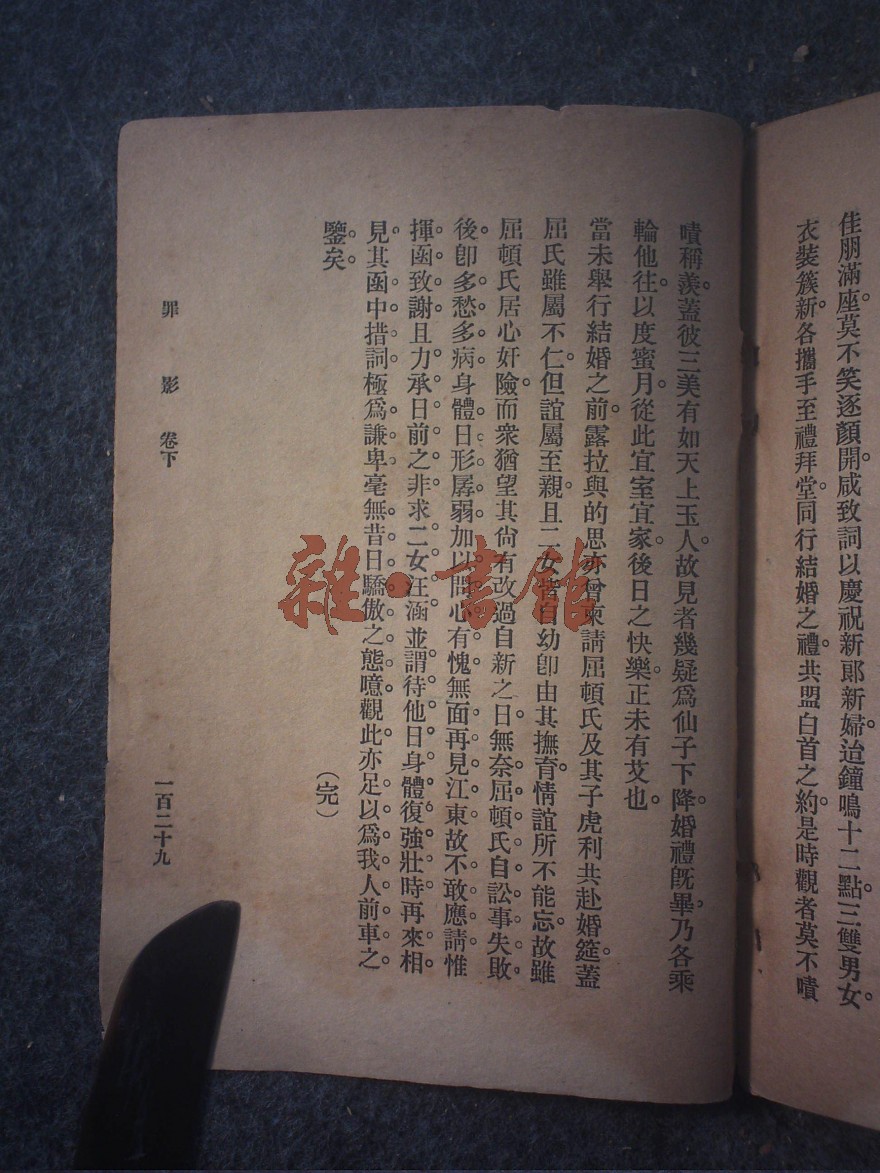 佳朋滿座。莫不笑逐顏開。咸致詞以慶祝新郞新婦。迨鐘鳴十二點。三雙男女
衣裝簇新。各攜手至禮拜堂。同行結婚之禮。共盟白首之約。是時觀者莫不嘖
嘖稱羨。蓋彼三美有如天上玉人。故見者幾疑爲仙子下降。婚禮旣畢。乃各乘
輪他往。以度蜜月。從此宜室宜家。後日之快樂。正未有艾也。
當未舉行結婚之前。露拉與的思亦曾柬請屈頓氏及其子虎利共赴婚筵。蓋
屈氏雖屬不仁。但誼屬至親。且二女皆自幼卽由其撫育。情誼所不能忘。故雖
屈頓氏居心奸險。而衆猶望其尙有改過自新之日。無奈屈頓氏自訟事失敗
後。卽多愁多病。身體日形孱弱。加以問心有愧。無面再見江東。故不敢應請。惟
揮函致謝。且力承日前之非。求二女汪涵。並謂待他日身體復強壯時。再來相
見。其函中措詞極爲謙卑。毫無昔日驕傲之態。噫。觀此亦足以爲我人前車之
鑒矣。
（完）
罪影 卷下
一百二十九
雜·書館